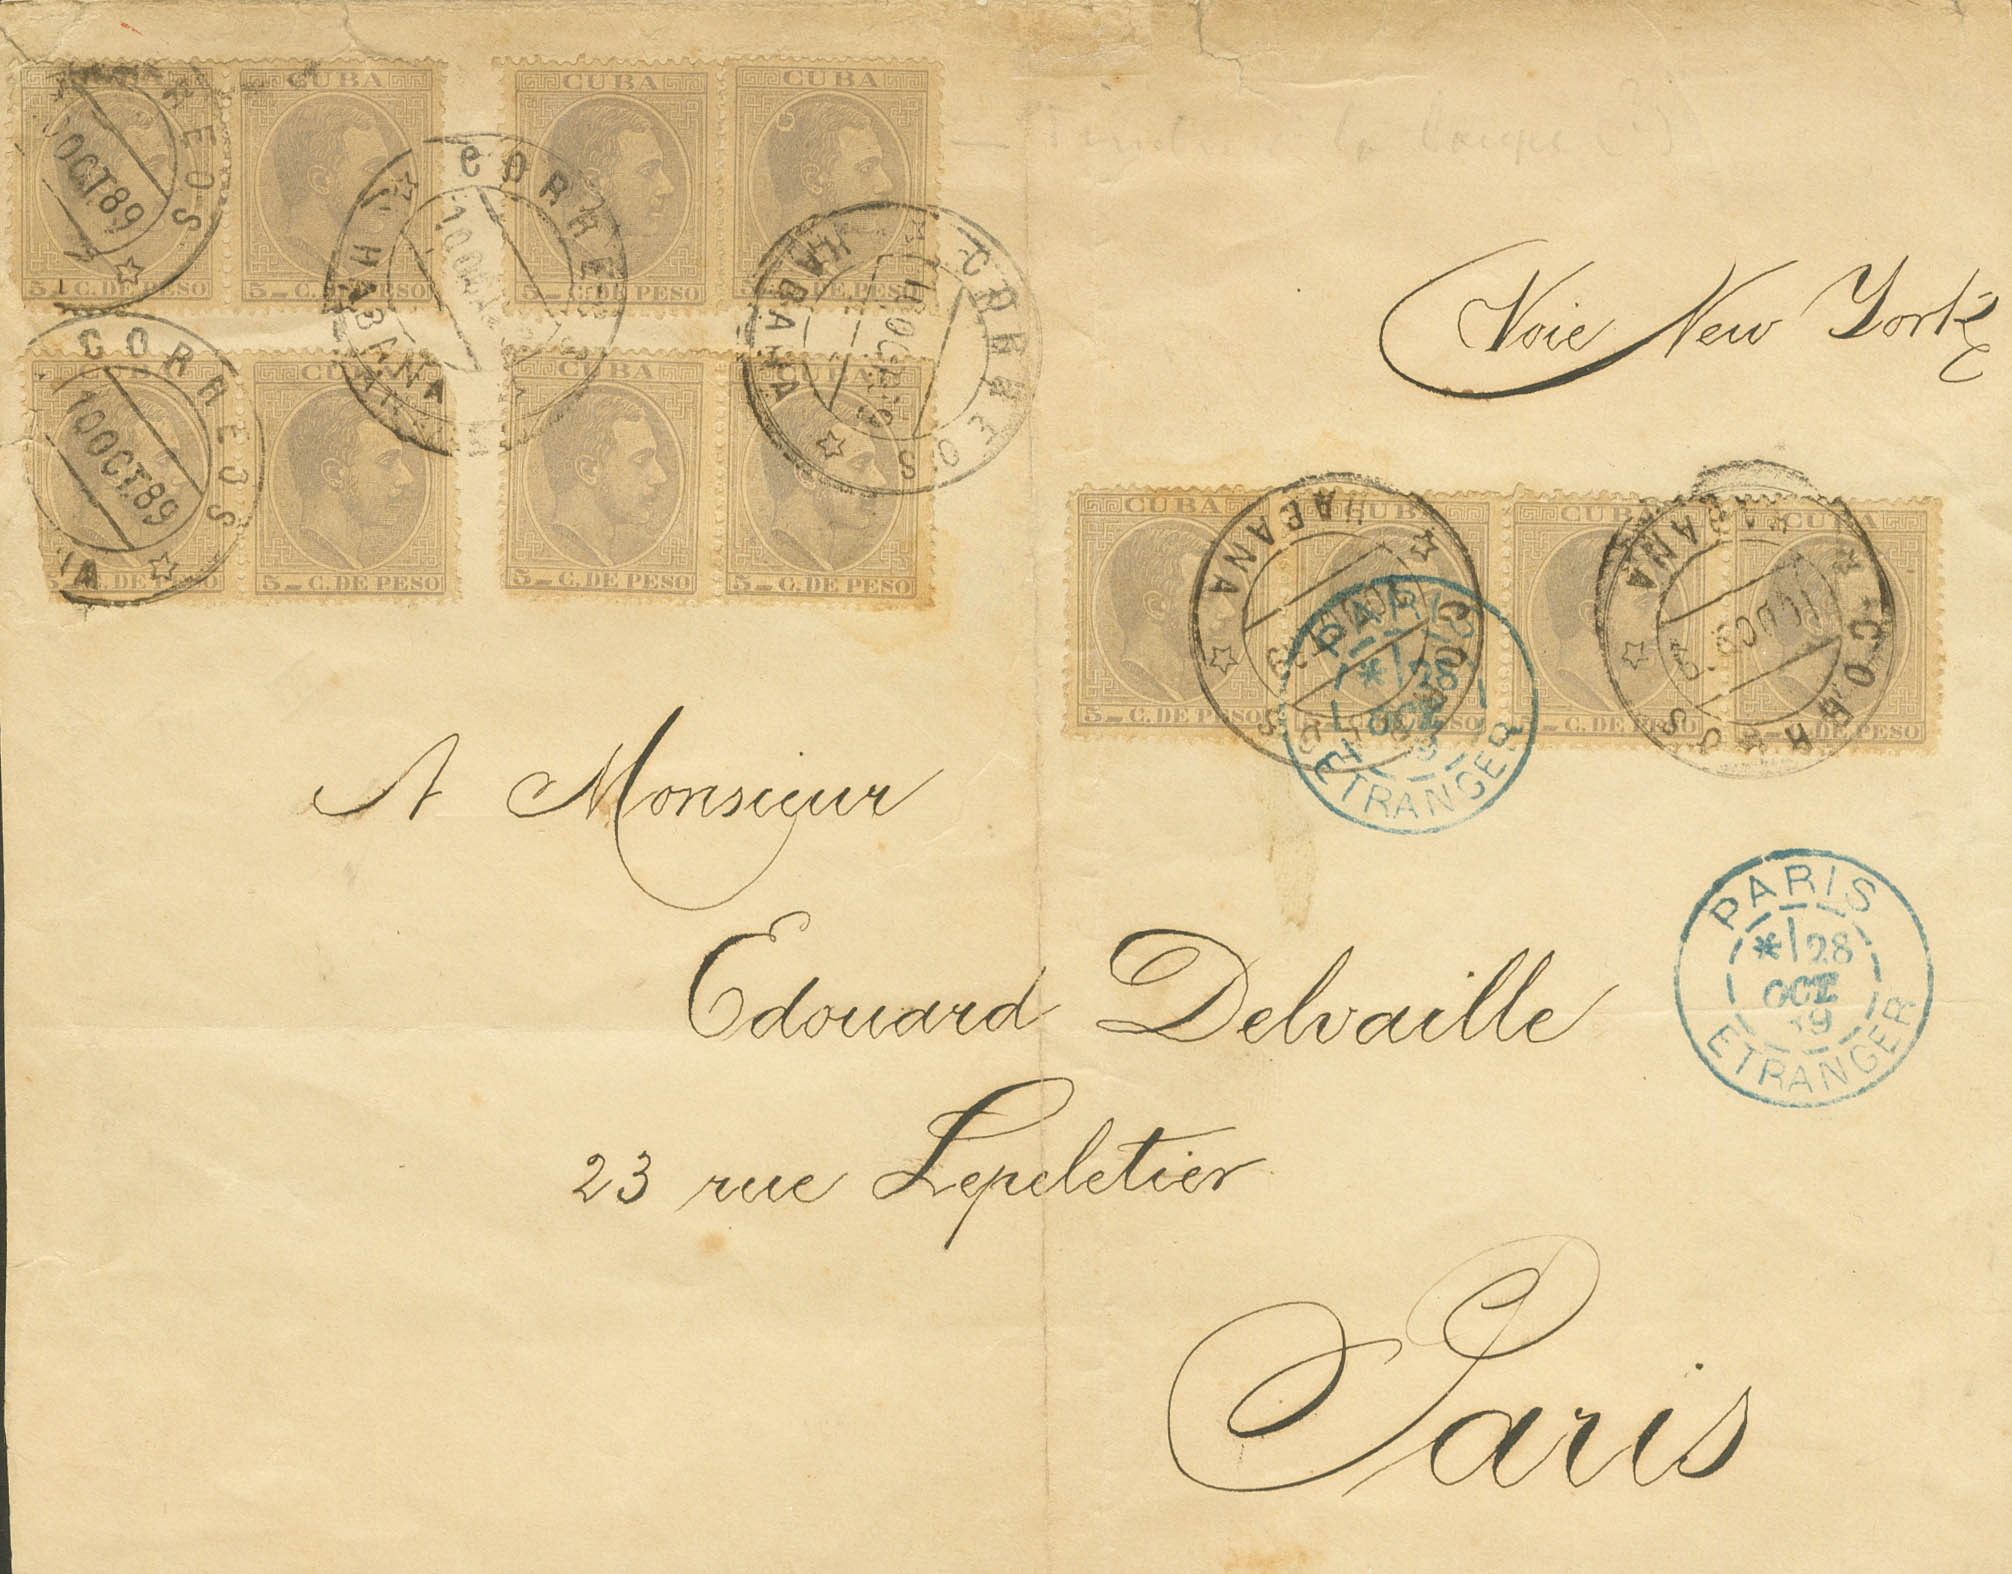 CUBA CUBA CUBA
5 C. DE PESO 5 C. DE PESO 5 C. DE PESO 5 C. DE PESO
CORREOS 10 OCT. 89
CORREOS HABANA
CORREOS HABANA
Voie New York
CUBA CUBA CUBA
C. DE PESO 5 C. DE PESO 5 C. DE PESO 5 C. DE PESO
CORREOS 10 OCT. 89
CUBA CUBA CUBA
5 C. DE PESO 5 C. DE PESO 5 C. DE PESO C. DE PESO
HABANA CORREOS
HABANA CORREOS
PARIS
28
OCT
ETRANGER
A Monsieur
Edouard Delvaille
PARIS
28
OCT
89
ETRANGER
23 rue Lepeletier
Paris